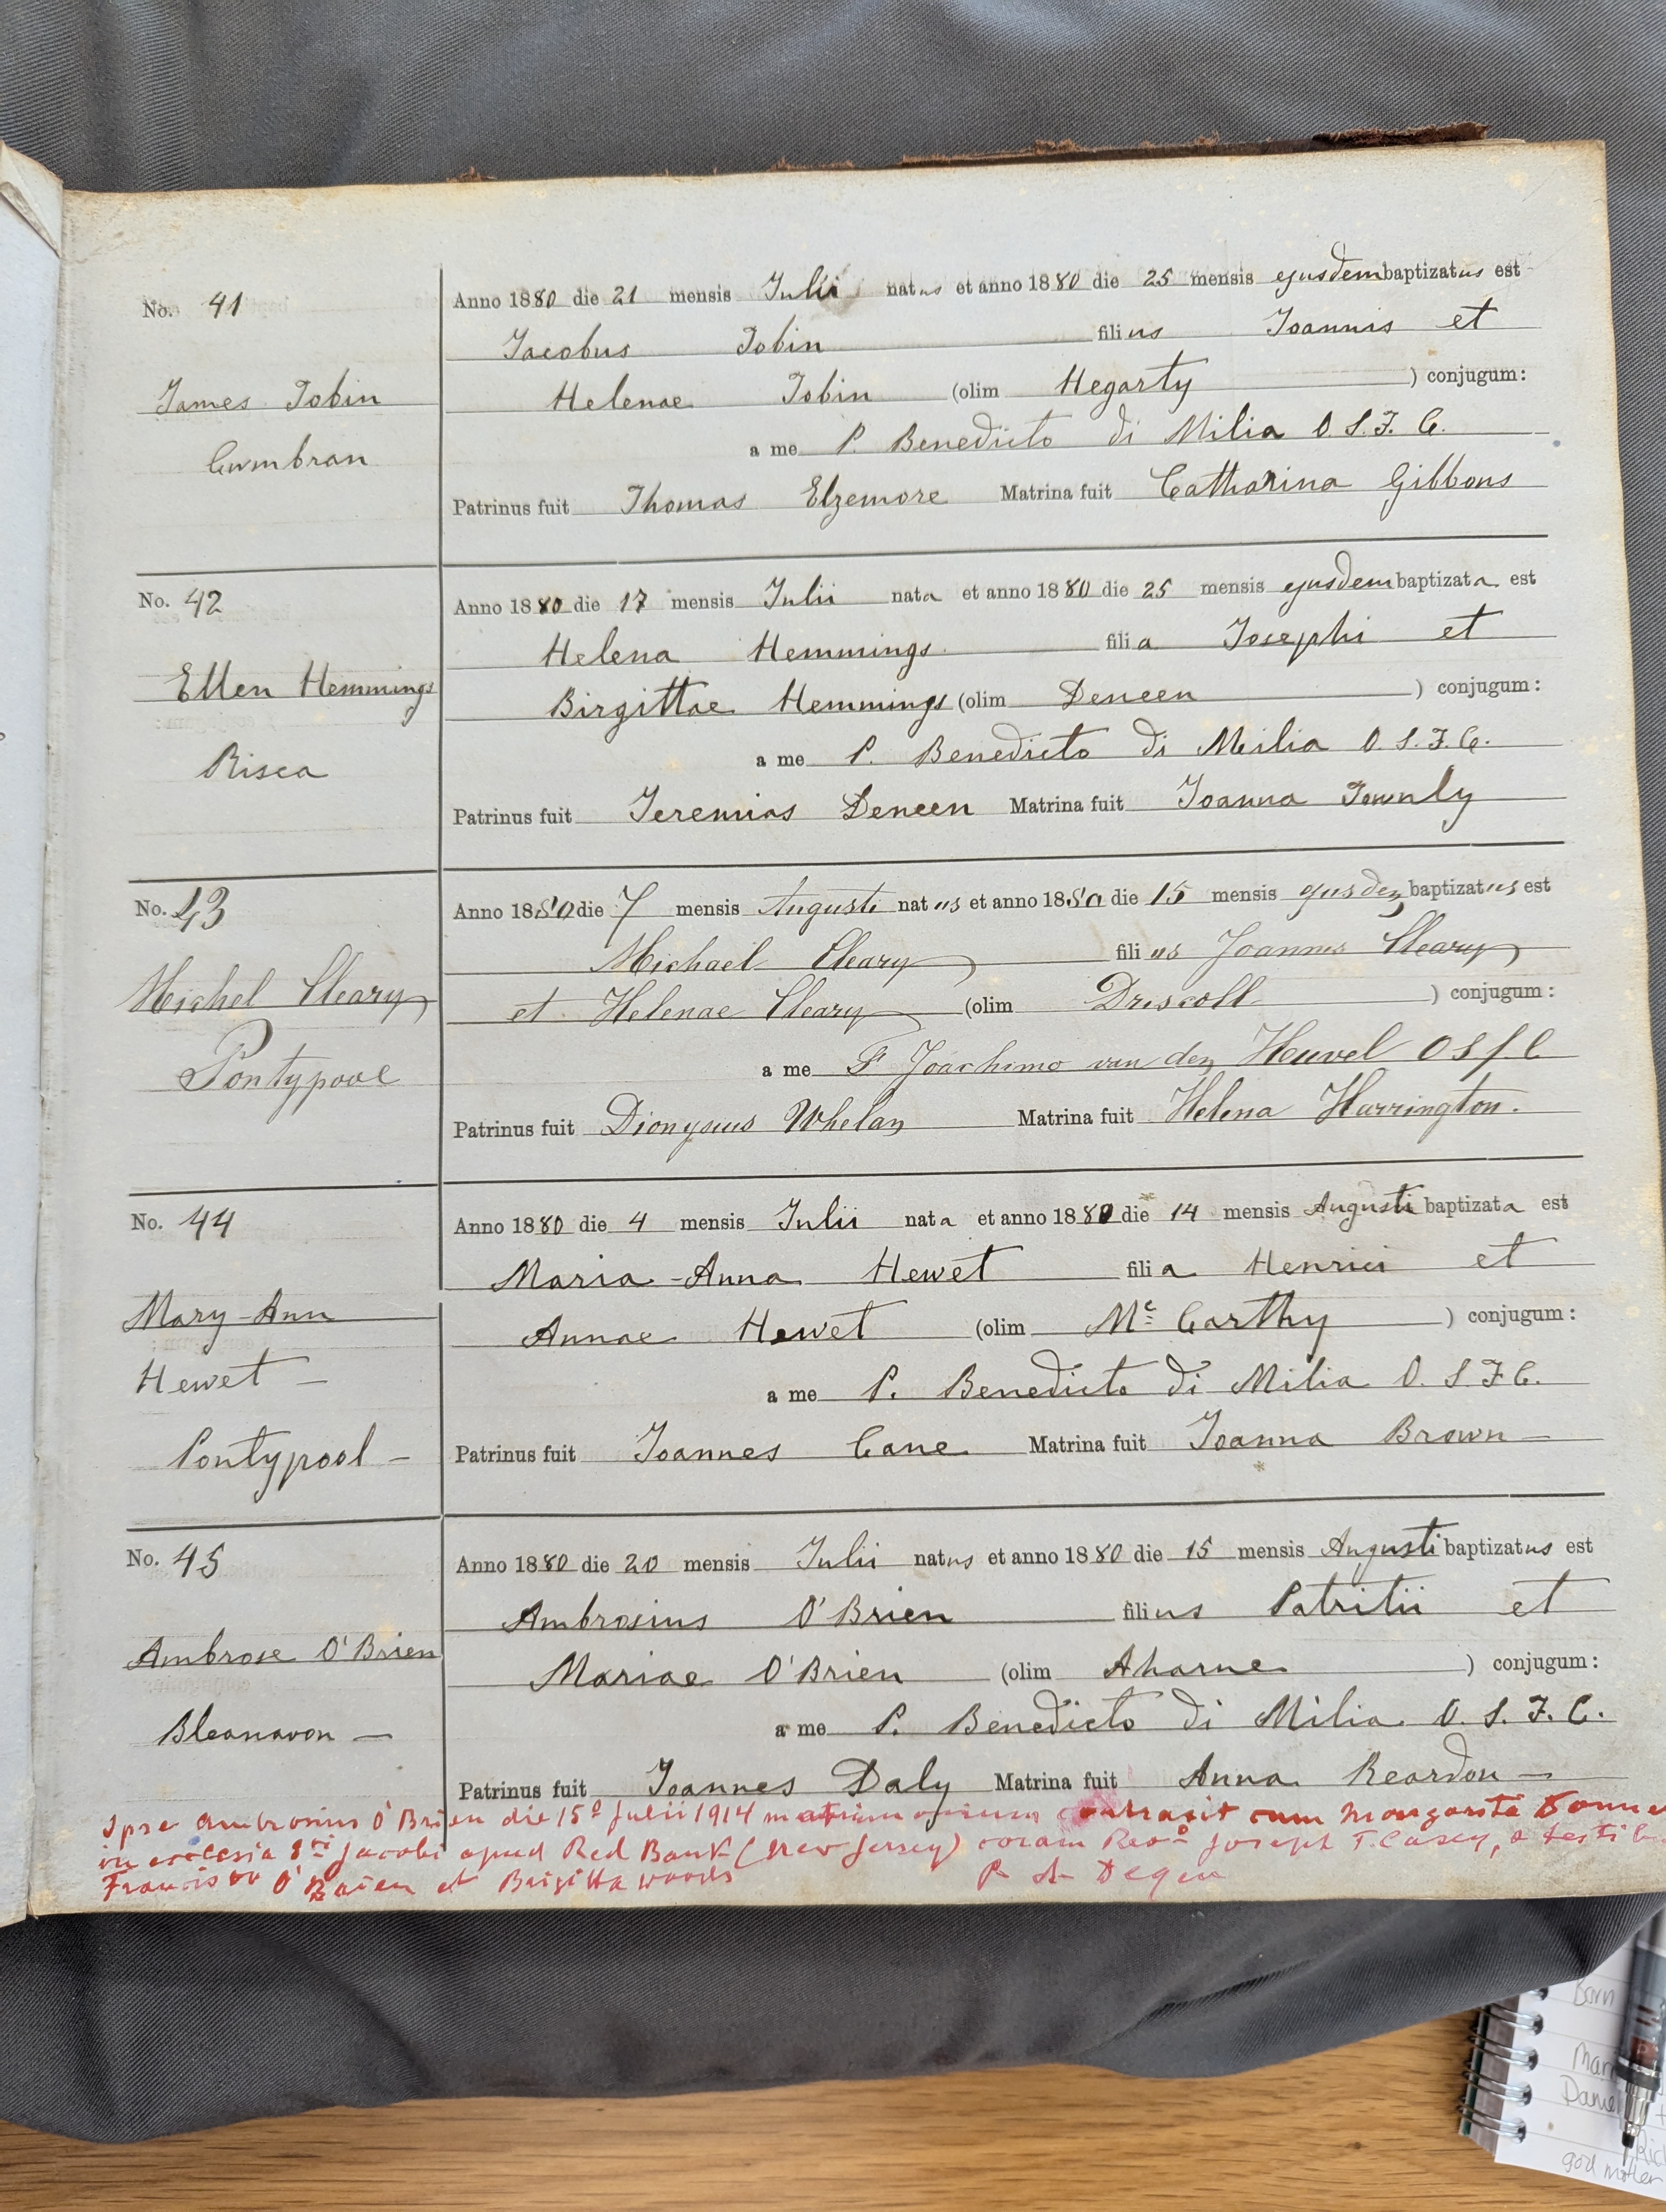 No. 41
Anno 1880 die 21 mensis Julii natus et anno 1880 die 25 mensis ejusdem baptizatus est
Jacobus Tobin filius Joannis et
James Tobin
Helenae Tobin (olim Hegarty ) conjugum:
Cwmbran
a me P. Benedicto di Milia O.S.F.C.
Patrinus fuit Thomas Elzemore Matrina fuit Catharina Gibbons
No. 42
Anno 1880 die 17 mensis Julii nata et anno 1880 die 25 mensis ejusdem baptizata est
Helena Hemmings filia Josephi et
Ellen Hemmings
Birgittae Hemmings (olim Deneen ) conjugum:
Risca
a me P. Benedicto di Milia O.S.F.C.
Patrinus fuit Jeremias Deneen Matrina fuit Joanna Townly
No. 43
Anno 1880 die 7 mensis Augusti natus et anno 1880 die 15 mensis ejusdem baptizatus est
Michael Cleary filius Joannes Cleary
Michel Cleary
et Helenae Cleary (olim Driscoll ) conjugum:
Pontypool
a me F Joachimo van den Heuvel O S f C
Patrinus fuit Dionysius Whelan Matrina fuit Helena Harrington.
No. 44
Anno 1880 die 4 mensis Julii nata et anno 1880 die 14 mensis Augusti baptizata est
Maria-Anna Hewet filia Henrici et
Mary-Ann
Annae Hewet (olim Mc Carthy ) conjugum:
Hewet –
a me P. Benedicto di Milia O.S.F.C.
Pontypool –
Patrinus fuit Joannes Cane Matrina fuit Joanna Brown –
No. 45
Anno 1880 die 20 mensis Julii natus et anno 1880 die 15 mensis Augusti baptizatus est
Ambrosius O'Brien filius Patritii et
Ambrose O'Brien
Mariae O'Brien (olim Aharne ) conjugum:
Bleanavon –
a me P. Benedicto di Milia O.S.F.C.
Patrinus fuit Joannes Daly Matrina fuit Anna Reardon –
Ipse Ambrosius O'Brien die 15º Julii 1914 matrimonium contraxit cum Margarita
in ecclesia Sti Jacobi apud Red Bank (New Jersey) coram Revº Joseph T. Casey,
Francisco O'Brien et Brigitta Woods
Born
Mar
Daniel
god mother